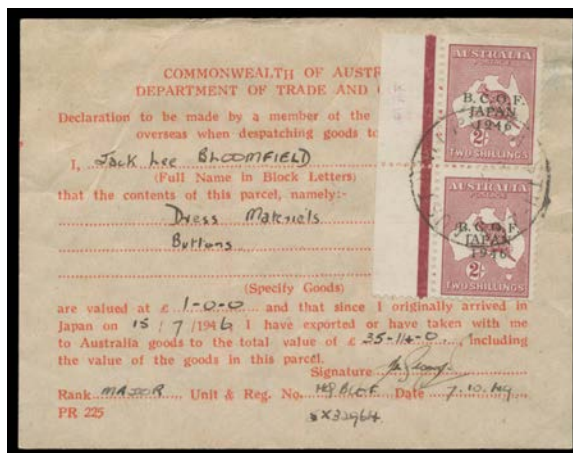 COMMONWEALTH OF AUSTR
DEPARTMENT OF TRADE AND
Declaration to be made by a member of the
overseas when despatching goods to
I, Jack Lee BLOOMFIELD
(Full Name in Block Letters)
that the contents of this parcel, namely:-
Dress Materials
Buttons
(Specify Goods)
are valued at £ 1-0-0 and that since I originally arrived in
Japan on 15/7/1946 I have exported or have taken with me
to Australia goods to the total value of £ 35-14-0, including
the value of the goods in this parcel.
Signature
Rank MAJOR Unit & Reg. No. HQ BCOF Date 7.10.49
PR 225
AUSTRALIA
POSTAGE
B.C.O.F.
JAPAN
1946
2/-
TWO SHILLINGS
AUSTRALIA
B.C.O.F.
JAPAN
1946
2/-
TWO SHILLINGS